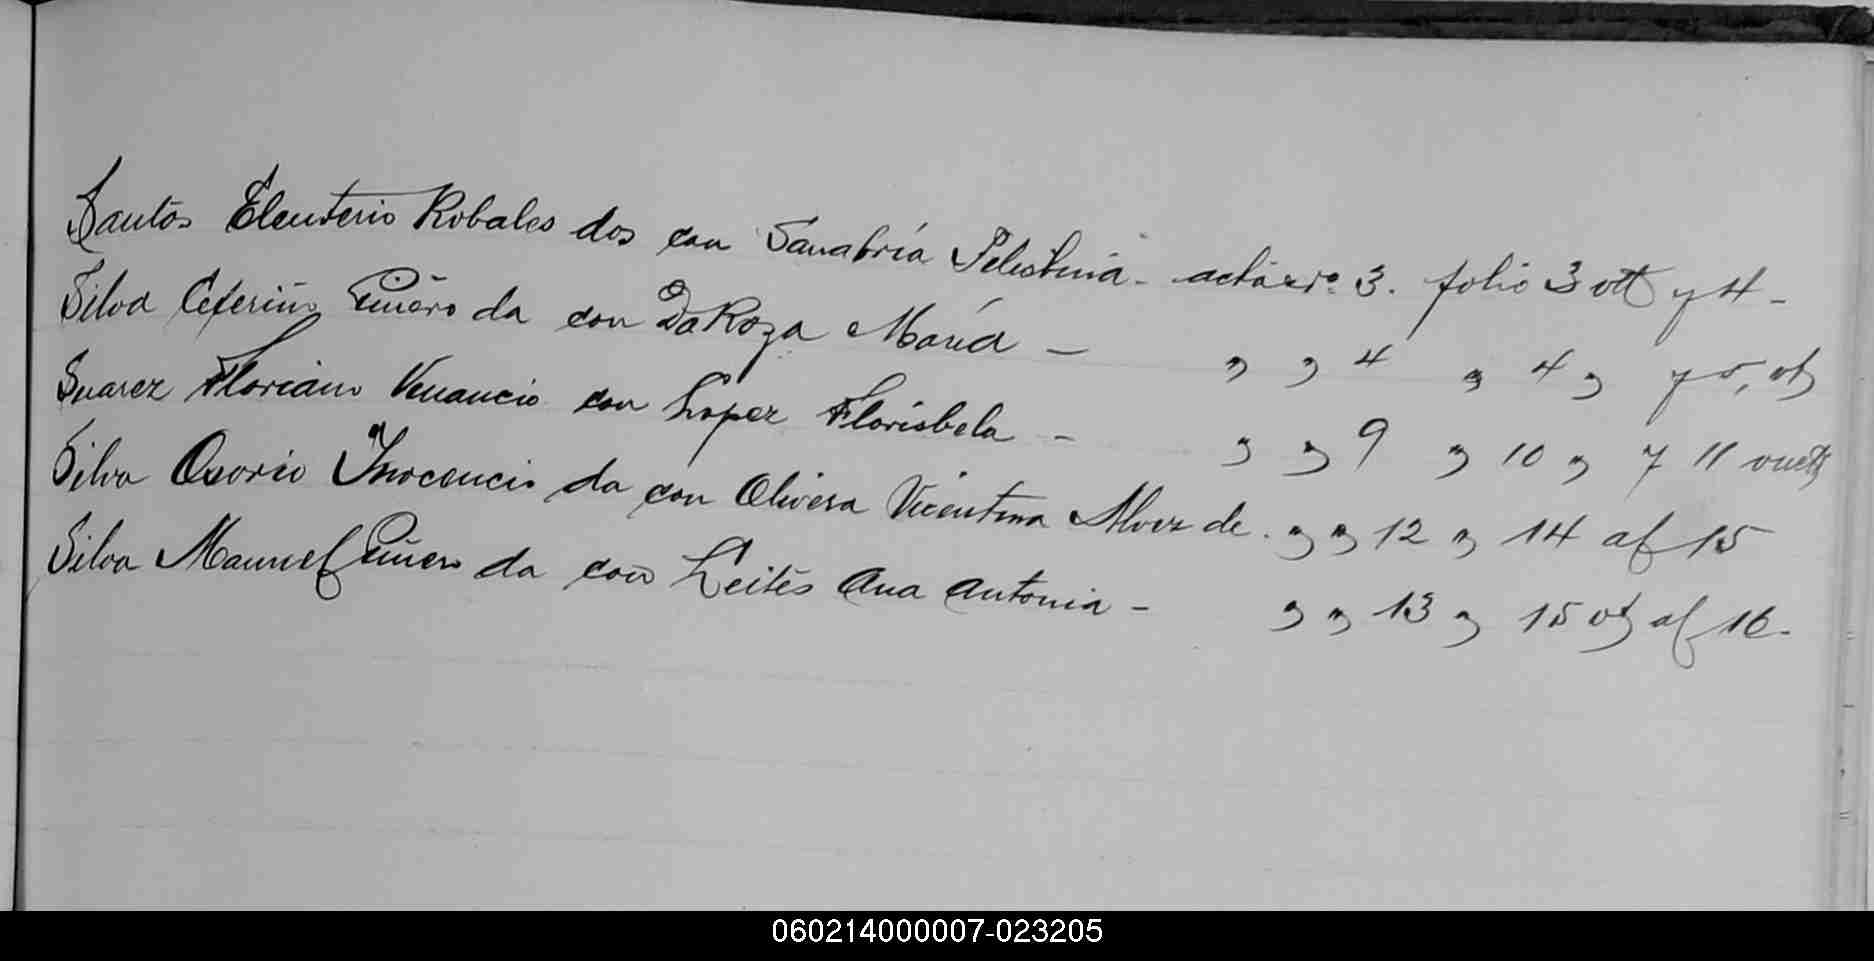 Santos Eleuterio Robales dos con Sanabría Pelestina - acta nro. 3. folio 3 vtt y 4 -
Silva Ceferino da con Da Roza María - " " 4 " 4 " y 5, vt
Suarez Floriano Venancio con Lopez Florisbela - " " 9 " 10 " y 11 vuelt
Silva Osorio Inocencio da con Olivera Vicentina Alvez de. " " 12 " 14 al 15
Silva Manuel da con Leites Ana Antonia - " " 13 " 15 vt al 16.
060214000007-023205